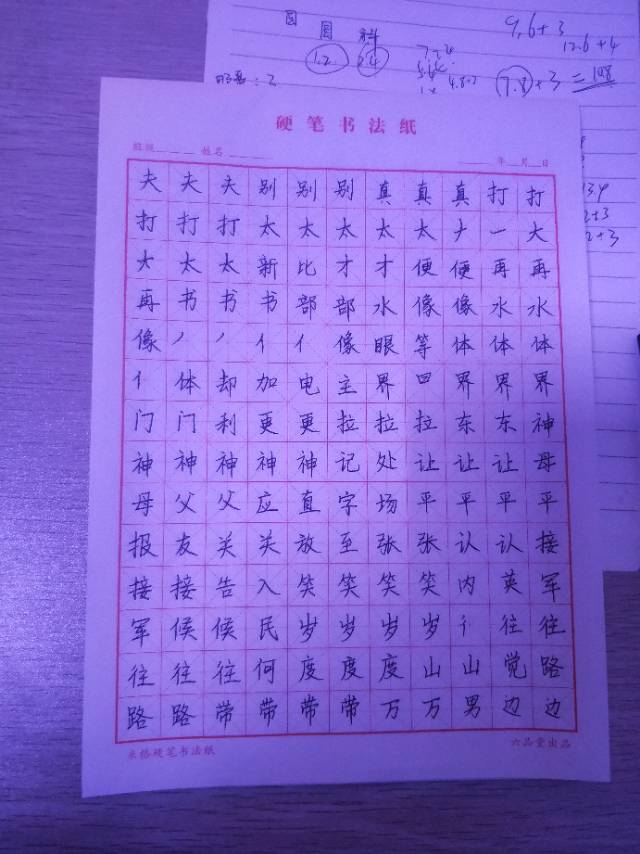 圆 圆 科
1.2 2.4
9.6+3
12.6+4
4.8+2
7.8+3 = 108
硬笔书法纸
班级 姓名 年 月 日
夫夫夫别别别真真真打打
打打打太太太太太𠂇一大
大太太新比才才便便再再
再书书书部部水像像水水
像丿丿亻亻像眼等体体体
亻体却加电主界田界界界
门门利更更拉拉拉东东神
神神神神神记处让让让母
母父父应直字场平平平平
报友关关放至张张认认接
接接告入笑笑笑笑内英军
军候候民岁岁岁岁彳往往
往往往何度度度山山觉路
路路带带带带万万男边边
米格硬笔书法纸 六品堂出品